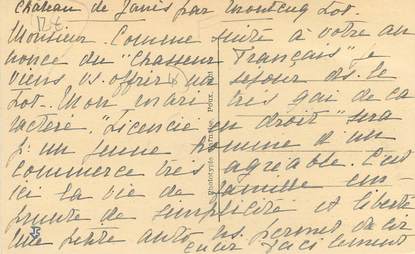 Chateau de Janis par Montcuq Lot.
Monsieur. Comme suite à votre an
nonce du "Chasseur Français" je
viens vs. offrir un séjour ds. le
Lot. Mon mari très gai de ca
ractère. "Licencié en droit" sera
p. un jeune homme d'un
commerce très agréable. C'est
ici la vie de famille em-
prunte de simplicité et liberté
Une petite auto ns. permet de cir
culer facilement
Phototypie